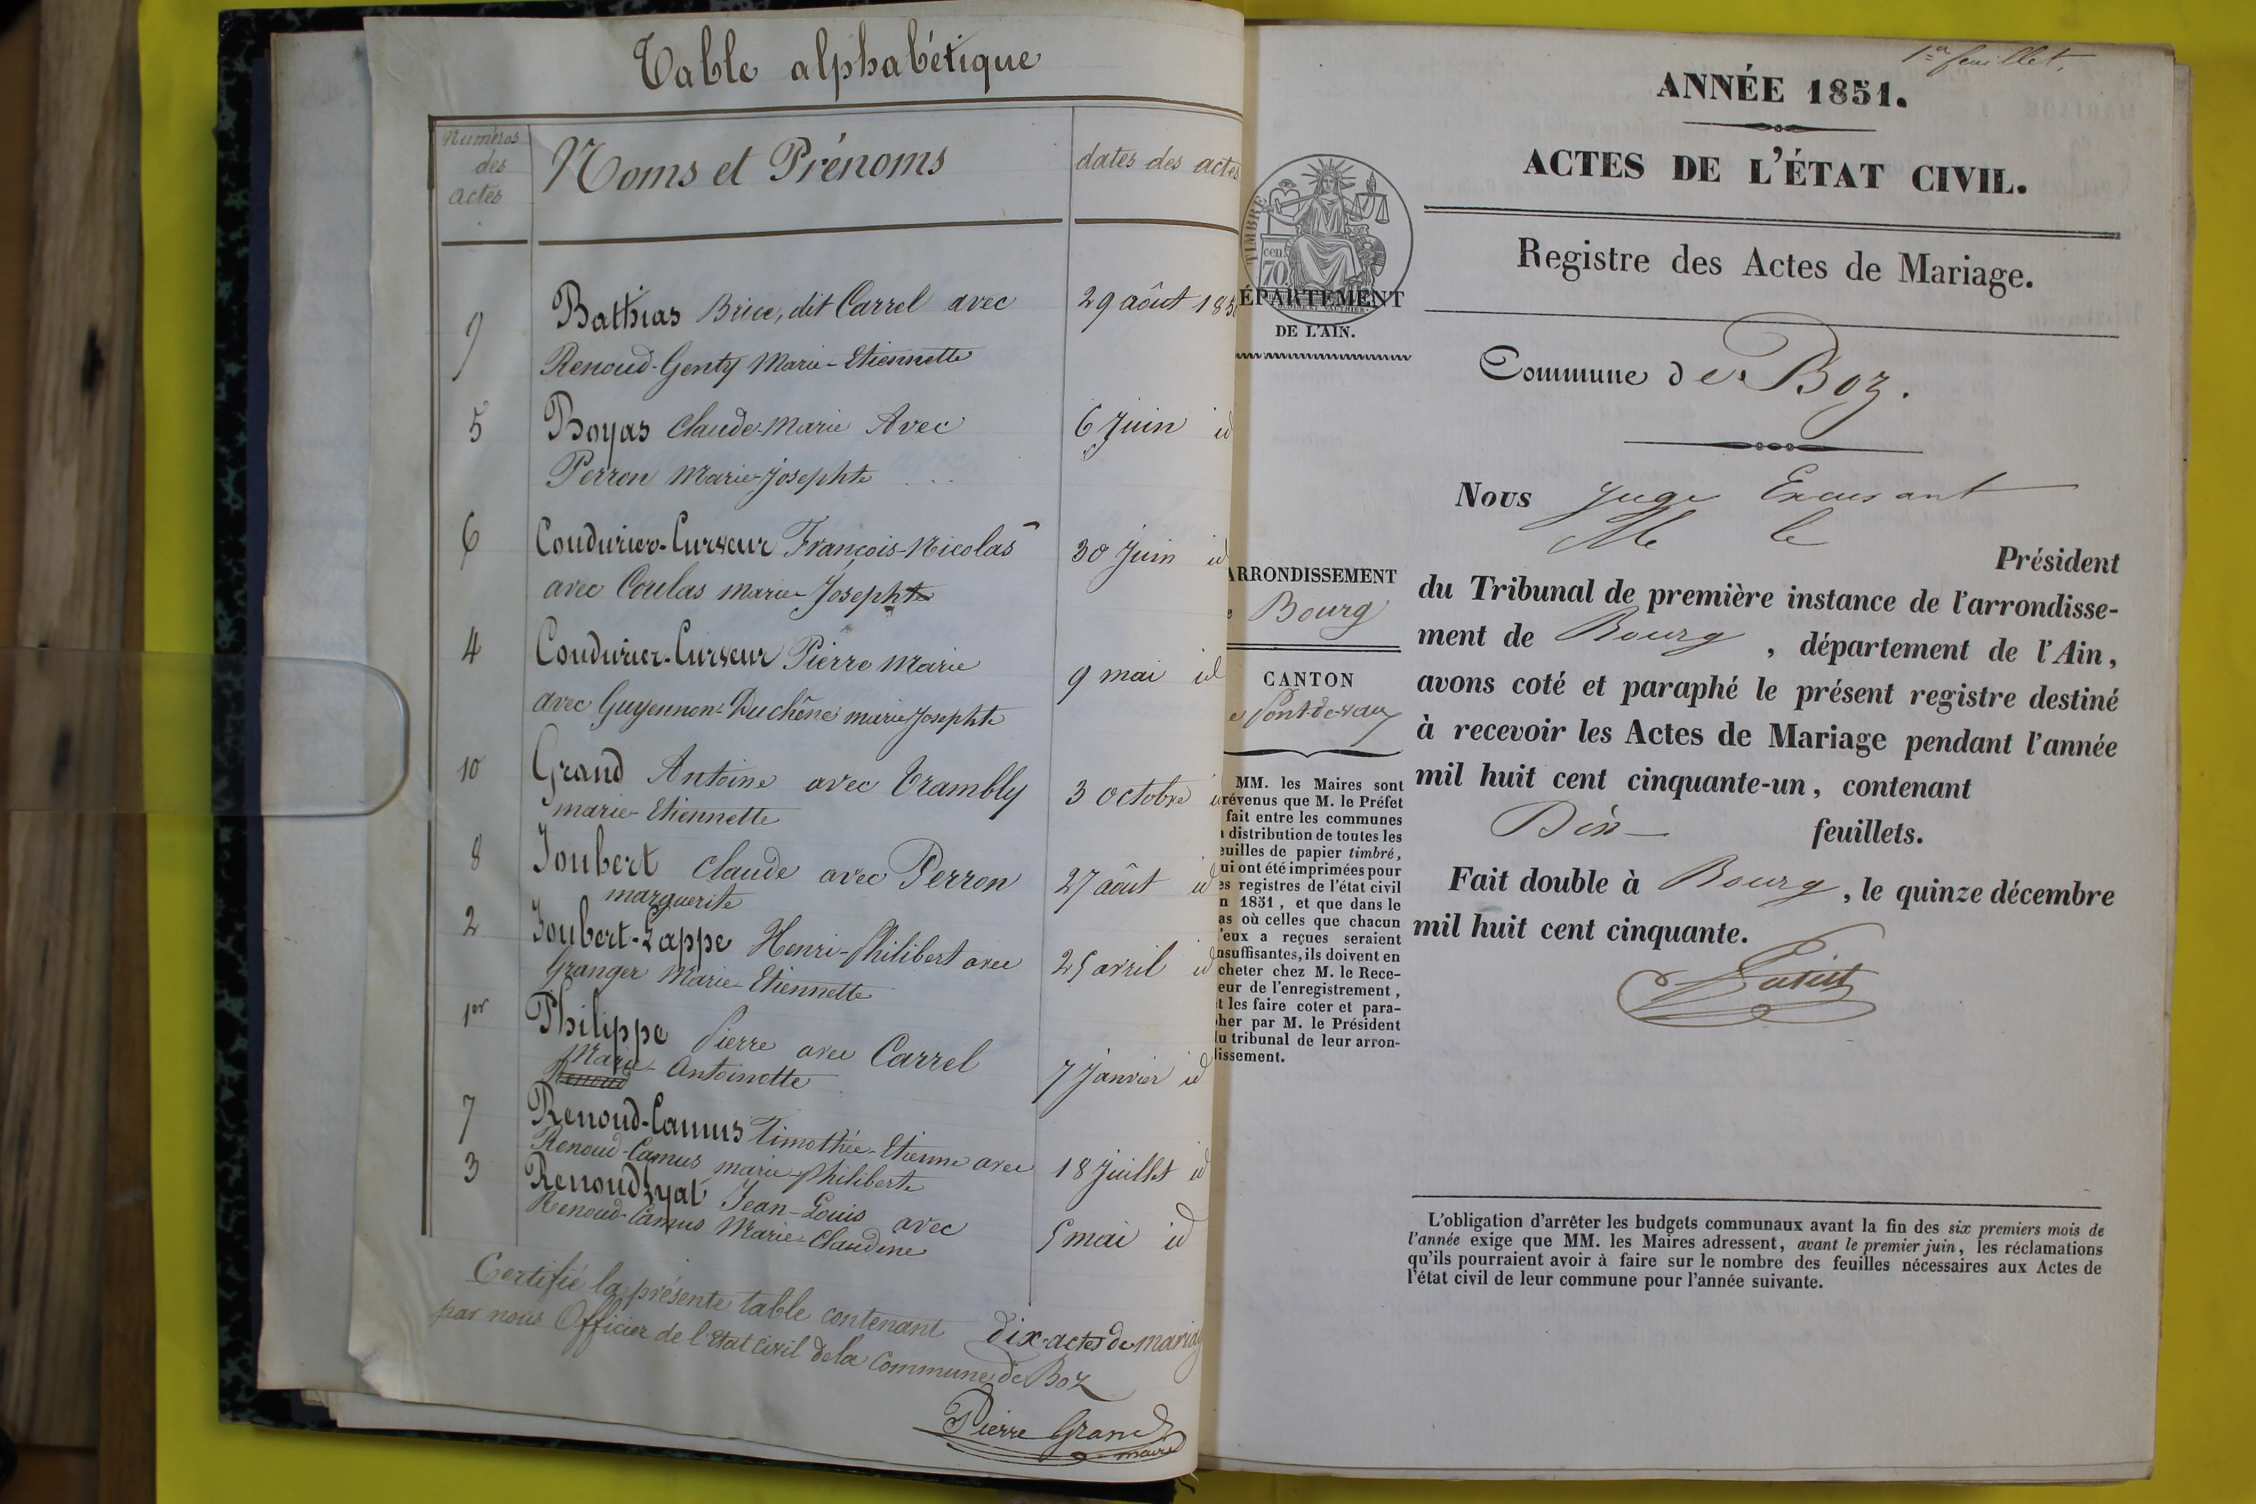 Table alphabétique
Numéros
des
actes
Noms et Prénoms
dates des actes
9
Bathias Brice, dit Carrel avec
29 août 185
Renoud-Genty Marie-Etiennette
5
Boyas Claude-Marie Avec
6 Juin id
Perron Marie-Josephte
6
Coudurier-Curveur François-Nicolas
30 Juin id
avec Coulas marie-Josephte
4
Coudurier-Curveur Pierre Marie
9 mai id
avec Guyennon-Duchêne marie Josephte
10
Grand Antoine avec Trambly
3 octobre
marie-Etiennette
8
Joubert Claude avec Perron
27 août id
marguerite
2
Joubert-Lappe Henri-Philibert avec
25 avril id
Granger Marie-Etiennette
1er
Philippe Pierre avec Carrel
7 Janvier id
Marie-Antoinette
Renoud
7
Renoud-Camus Timothée-Etienne avec
18 Juillet id
Renoud-Camus marie-Philiberte
3
Renoud Lyat Jean-Louis avec
5 mai id
Renoud-Camus Marie-Claudine
Certifié la présente table contenant dix-actes de mariag
par nous Officier de l'Etat civil de la Commune de Boz
Pierre Grand
maire
1er feuillet.
ANNÉE 1851.
ACTES DE L'ÉTAT CIVIL.
Registre des Actes de Mariage.
TIMBRE
cent.
70
ÉPARTEMENT
DE L'AIN.
Commune de Boz.
ARRONDISSEMENT
e Bourg
CANTON
e Pont-de-vaux
MM. les Maires sont
révenus que M. le Préfet
fait entre les communes
a distribution de toutes les
euilles de papier timbré,
ui ont été imprimées pour
es registres de l'état civil
n 1851, et que dans le
as où celles que chacun
'eux a reçues seraient
nsuffisantes, ils doivent en
cheter chez M. le Rece-
eur de l'enregistrement,
t les faire coter et para-
her par M. le Président
u tribunal de leur arron-
issement.
Nous Juge Excusant
Mr le
Président
du Tribunal de première instance de l'arrondisse-
ment de Bourg, département de l'Ain,
avons coté et paraphé le présent registre destiné
à recevoir les Actes de Mariage pendant l'année
mil huit cent cinquante-un, contenant
Dix feuillets.
Fait double à Bourg, le quinze décembre
mil huit cent cinquante.
L'obligation d'arrêter les budgets communaux avant la fin des six premiers mois de
l'année exige que MM. les Maires adressent, avant le premier juin, les réclamations
qu'ils pourraient avoir à faire sur le nombre des feuilles nécessaires aux Actes de
l'état civil de leur commune pour l'année suivante.